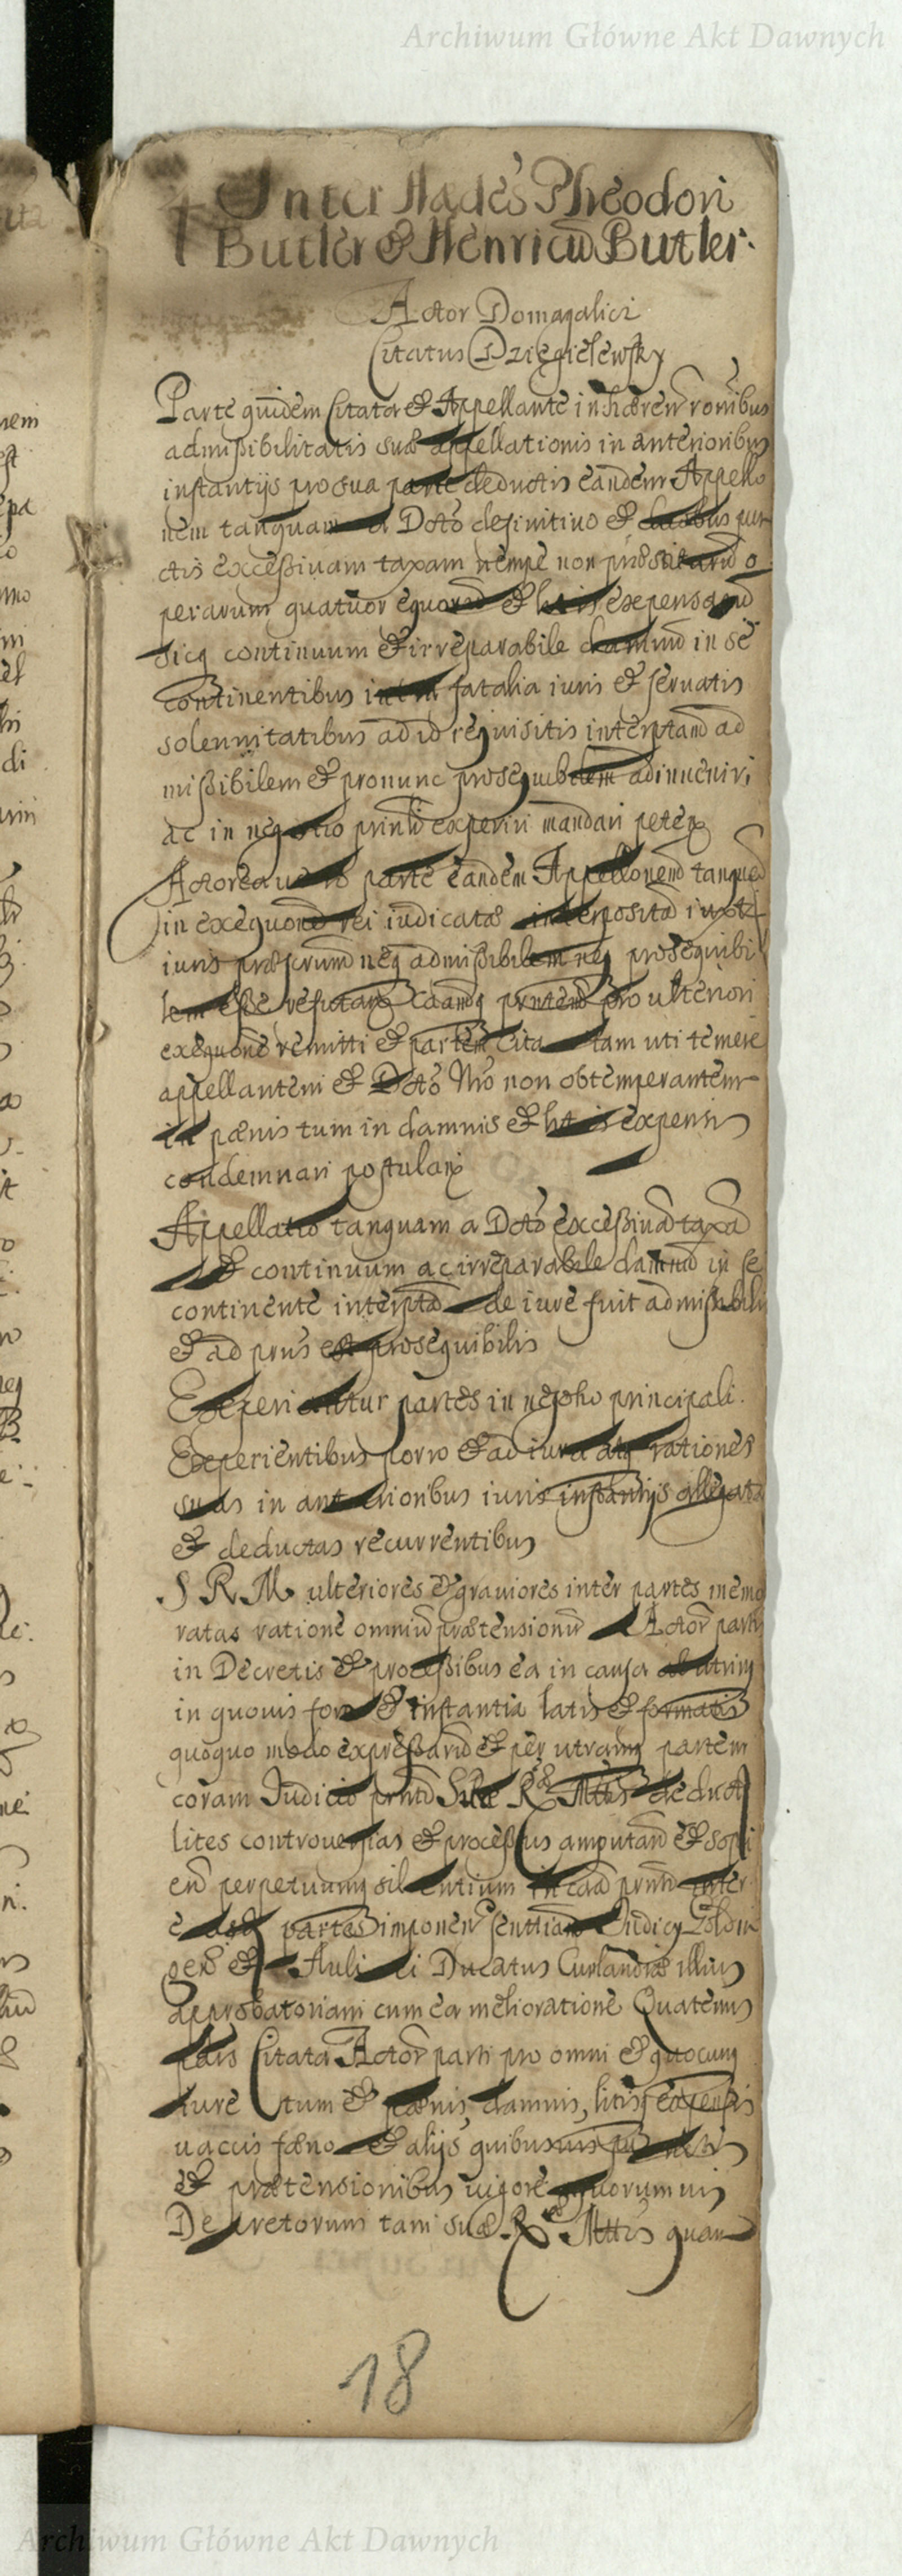 Archiwum Główne Akt Dawnych
Inter Hæredes Theodori
Butler & Henricū Butler
Actor Domagalicz
Citatus Dziegielewsky
Parte quidem Citata & Appellante inhæren rōnibus
admißibilitatis suæ appellationis in anterioribus
instantijs pro sua parte deductis eandem Appello
nem tanquam a Dcto definitivo & duobus pun
ctis exceßivam taxam nempe non
perarum quatuor equorum & litis expensarū
sicq continuum & irreparabile damnū in se
continentibus intra fatalia iuris & servatis
solennitatibus ad id requisitis interptam ad
mißibilem & pronunc prosequibilem adinveniri
ac in negotio prinli experiri mandari peten
Actorea vero parte eandem Appellonem tanquā
in exequone rei iudicatæ interpositā iuxta
iuris præscrum neq admißibilem neq prosequibi
lem eße reputan Caamq prntem pro ulteriori
exequone remitti & partem Citatam uti temere
appellantem & Dcto Nro non obtemperantem
in pœnis tum in damnis & litis expensis
condemnari postulan
Appellatio tanquam a Dcto exceßivā taxā
& continuum ac irreparabile damnū in se
continente interpta de iure fuit admißibilis
& ad prns est prosequibilis
Experiantur partes in negotio principali.
Experientibus porro & ad iura atq rationes
suas in anterioribus iuris instantijs allegatas
et deductas recurrentibus
S R M ulteriores & graviores inter partes memo
ratas ratione omniū prætensionū Actor parti
in Decretis & proceßibus ea in causa ab utrinq
in quovis foro & instantia latis & formatis
quoquo modo expreßarū & per utramq partem
coram Iudicio prnti Suæ Ræ Mttis deduct
lites controversias & proceßus amputan & sopi
en perpetuumq silentium in caa prnti inter
easdq partes imponen senttiam Iudicij Goldin
gen & Aulici Ducatus Curlandiæ illius
approbatoriam cum ea melioratione Quatenus
pars Citata Actor parti pro omni & quocunq
iure tum & pœnis, damnis, litis expensis
vaccis fœno & alijs quibusvis
& prætensionibus vigore quorumvis
Decretorum tam suæ R Mttis quam
18
Archiwum Główne Akt Dawnych